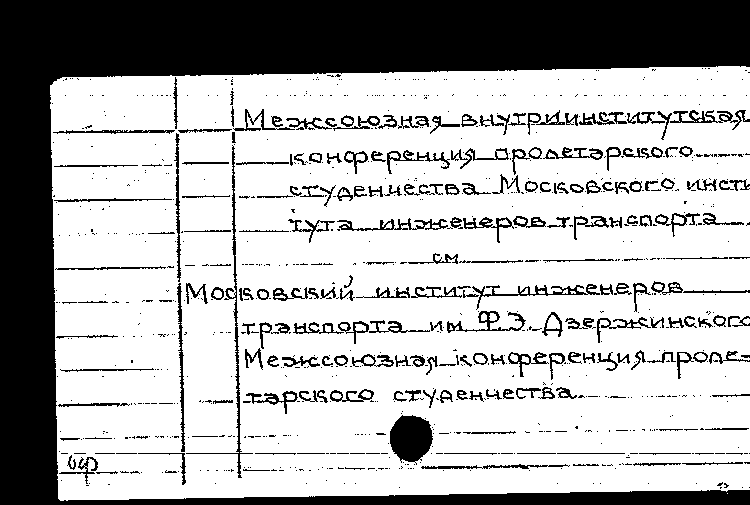 Межсоюзная внутриинститутская
конференция пролетарского
студенчества Московского инсти
тута инженеров транспорта
см
Московский институт инженеров
транспорта им Ф.Э. Дзержинского
Межсоюзная конференция проле-
тарского студенчества.